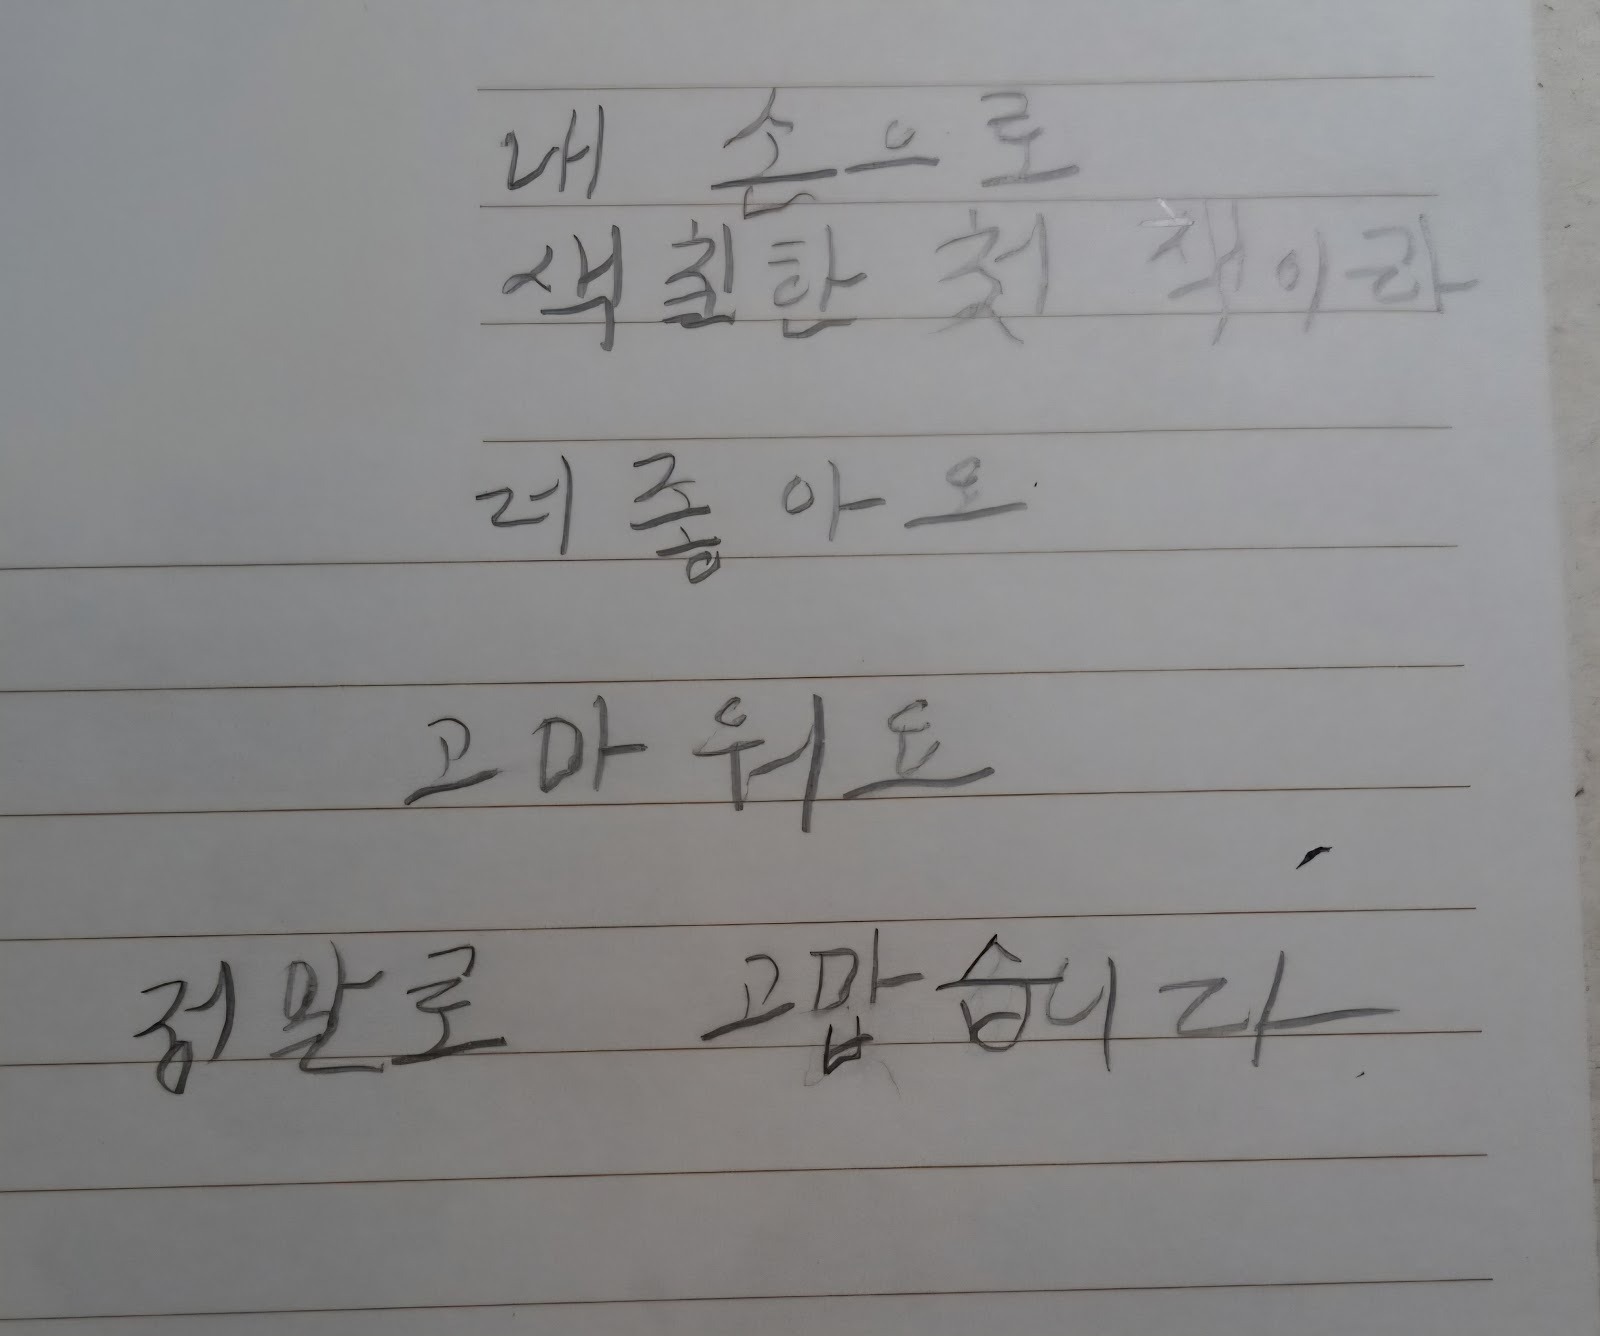 내 손으로
색칠한 첫 책이라
더좋아요
고마워요
정말로 고맙습니다